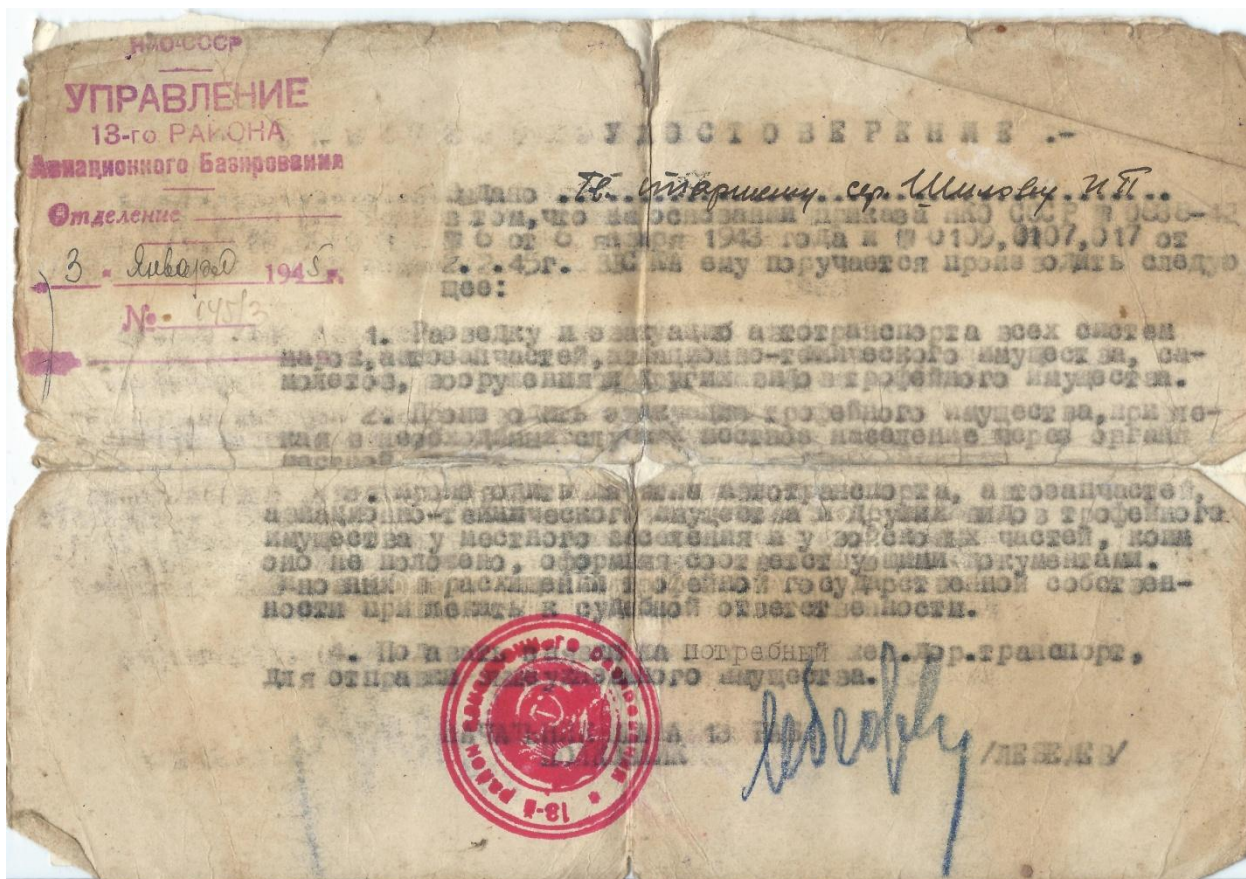 НКО-СССР
УПРАВЛЕНИЕ
13-го РАЙОНА
Авиационного Базирования
Отделение
3 " Января 1945 г.
№ 145/3
УДОСТОВЕРЕНИЕ .-
Выдано Тв. старшему сер. Шилову И П
в том, что на основании приказа НКО СССР №
№ 6 от 6 января 1943 года и № 0109,0107,017 от
2.2.45г. ему поручается производить следую
щее:
1. Разведку и эвакуацию автотранспорта всех систем
марок, автозапчастей, авиационно-технического имущества, са-
молетов, вооружения и других видов трофейного имущества.
2. Производить эвакуацию трофейного имущества, привле-
кая в необходимых случаях местное население через органы
местной
3. Производить изъятие автотранспорта, автозапчастей,
авиационно-технического имущества и других видов трофейного
имущества у местного населения и у войсковых частей, коим
оно не положено, оформляя соответствующими документами.
Виновных в расхищении трофейной государственной собствен-
ности привлекать к судебной ответственности.
4. Подавать заявки на потребный жел.дор.транспорт,
для отправки имущества.
НАЧАЛЬНИК 13 РАБ
ПОЛКОВНИК /ЛЕБЕДЕВ/
Лебедев
13-й район авиационного базирования